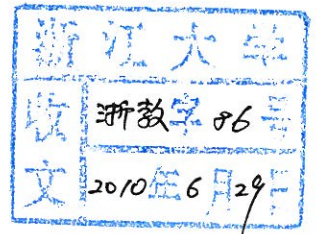 浙江大学
收文
浙教字86号
2010年6月29日